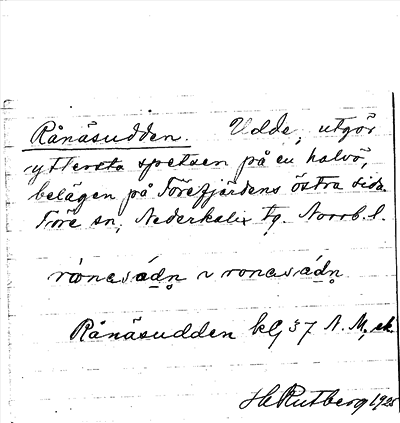 Rånäsudden. Udde, utgör
yttersta spetsen på en halvö,
belägen på Törefjärdens östra sida
Töre sn, Nederkalix tg. Norrb. l.
Rånäsudden kbl 37 N. M, ek.
H Rutberg 1925